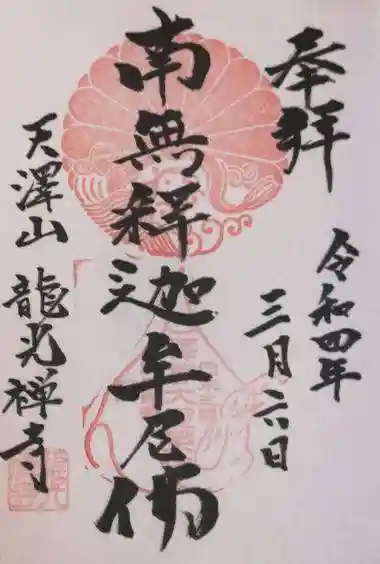 奉拜
令和四年
三月六日
南無釋迦牟尼佛
天澤山 龍光禅寺